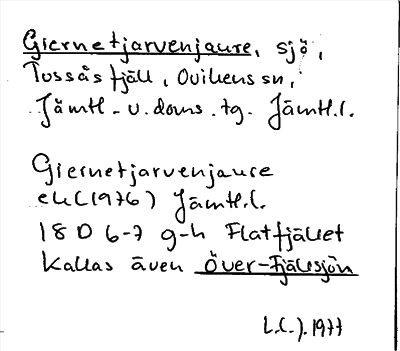 Giernetjarvenjaure, sjö,
Tossåsfjäll, Ovikens sn,
Jämtl. u. doms. tg. Jämtl. l.
Giernetjarvenjaure
ek (1976) Jämtl. l.
18 D 6-7 g-h Flatfjället
kallas även Över-Fjällsjön
L.C.). 1977